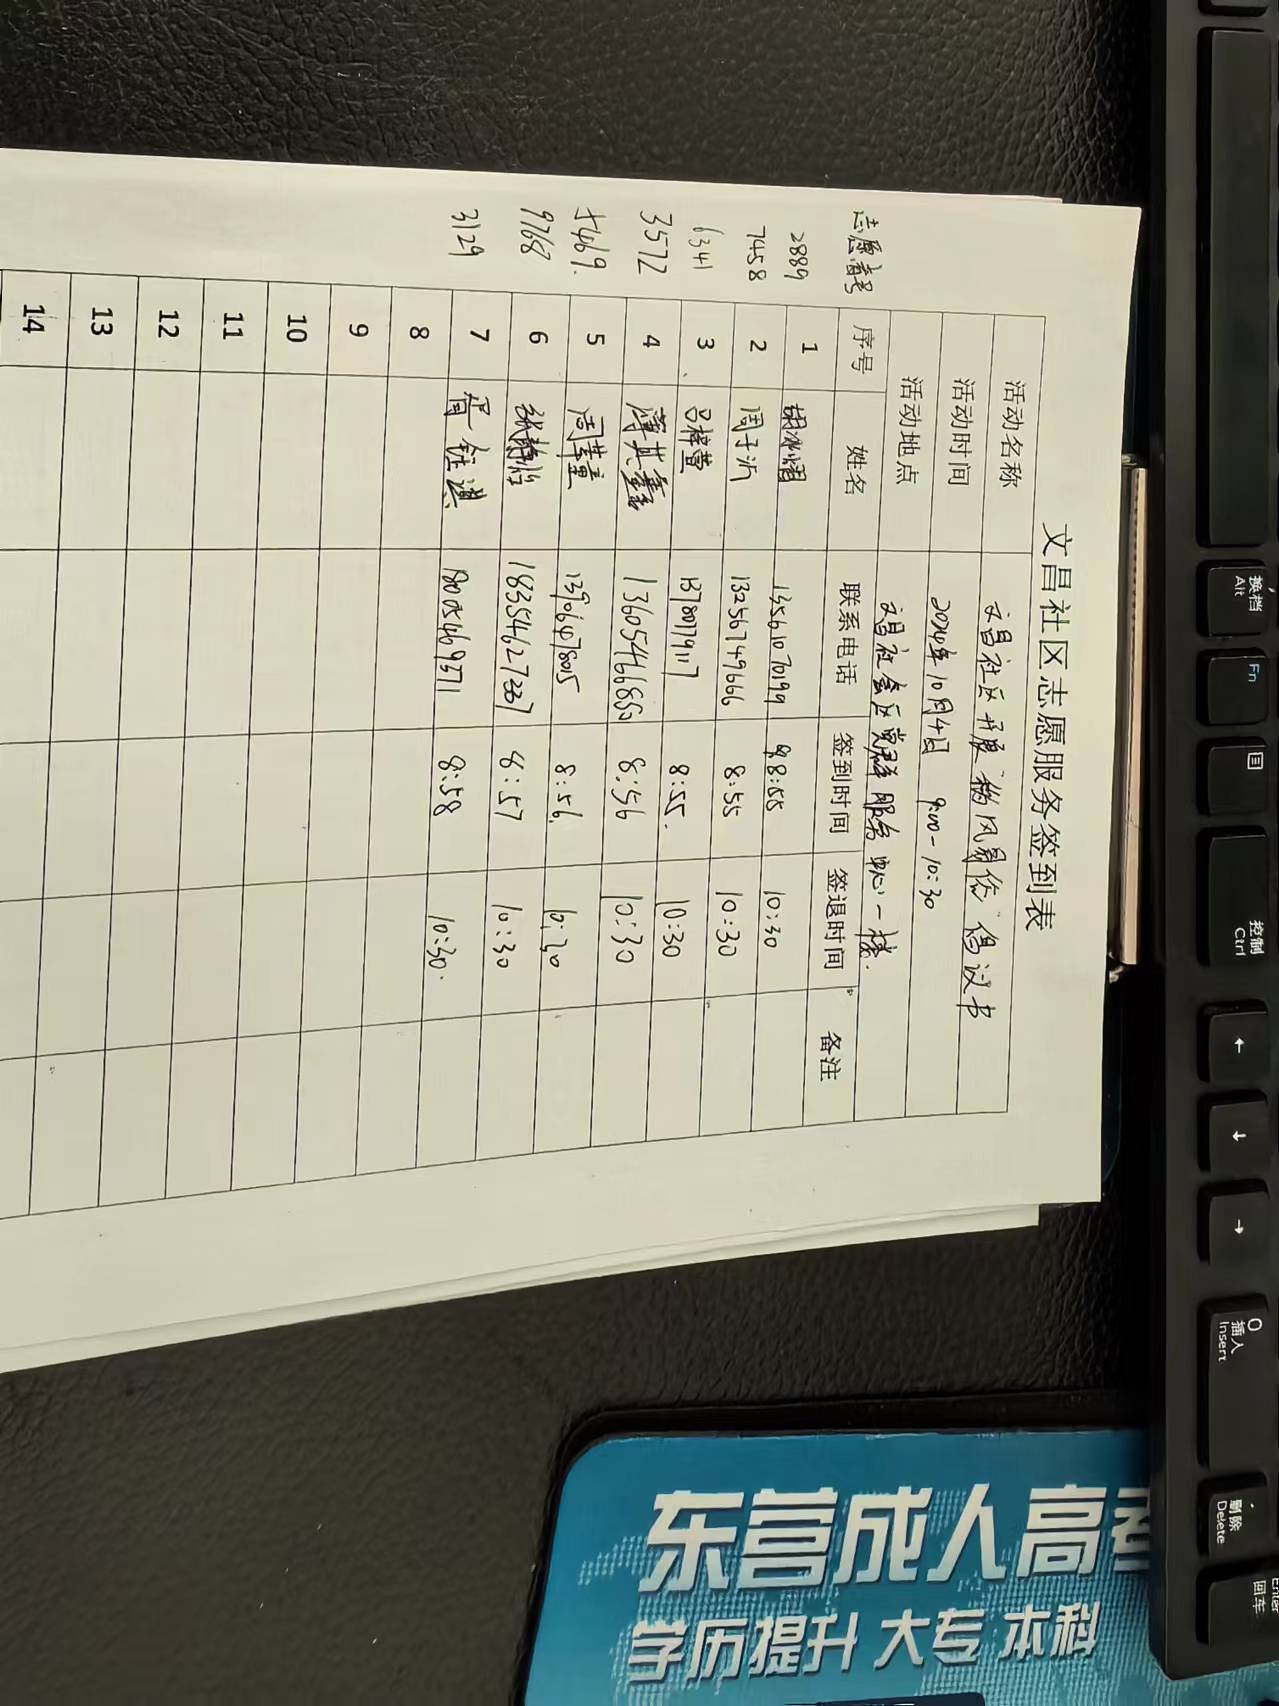 文昌社区志愿服务签到表
活动名称 文昌社区开展"移风易俗"倡议书
活动时间 2024年10月4日 9:00-10:30
活动地点 文昌社会区党群服务中心一楼.
志愿者号 序号 姓名 联系电话 签到时间 签退时间 备注
2889 1 胡冰熠 13561070199 8:55 10:30
7458 2 周子沂 13256749666 8:55 10:30
6341 3 吕梓萱 8:55. 10:30
3572 4 薄其鑫 13605466850 8:56 10:30
5469. 5 周芊童 13906478015 8:56. 10:30
9768 6 张静怡 18354627227 8:57 10:30
3129 7 钰淇 18005469371 8:58 10:30.
8
9
10
11
12
13
14
换档
Alt
Fn
控制
Ctrl
←
↓
→
0
插入
Insert
.
删除
Delete
Enter
回车
东营成人高考
学历提升 大专 本科